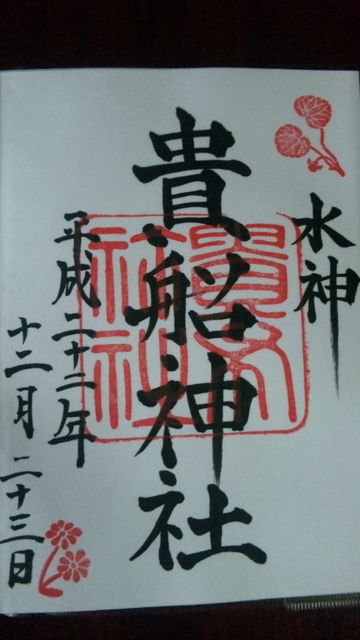 水神
貴船神社
平成二十二年
十二月二十三日